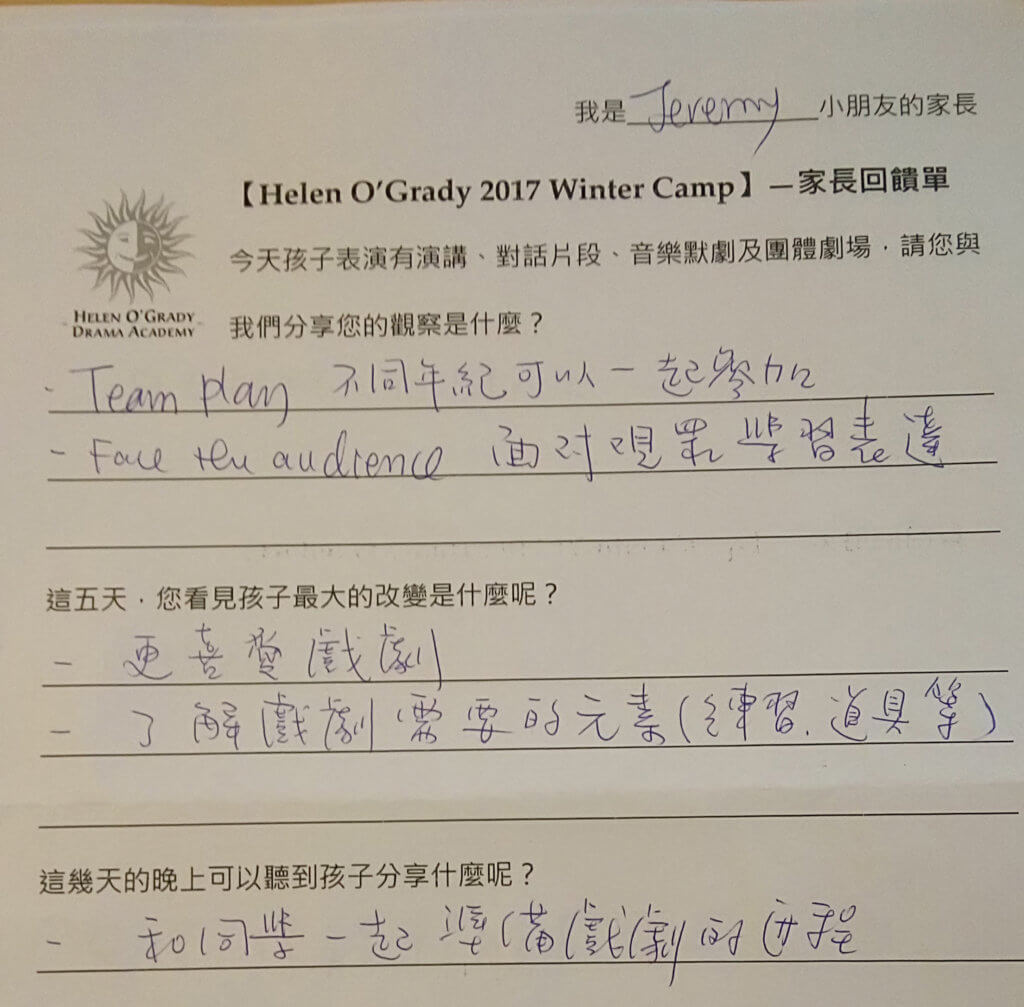 我是 Jeremy 小朋友的家長
【Helen O'Grady 2017 Winter Camp】—家長回饋單
HELEN O'GRADY
DRAMA ACADEMY
今天孩子表演有演講、對話片段、音樂默劇及團體劇場，請您與
我們分享您的觀察是什麼？
- Team play 不同年紀可以一起參加
- Face the audience 面对現眾學習表達
這五天，您看見孩子最大的改變是什麼呢？
- 更喜愛戲劇
- 了解戲劇需要的元素(練習.道具等)
這幾天的晚上可以聽到孩子分享什麼呢？
- 和同學一起準備戲劇的过程